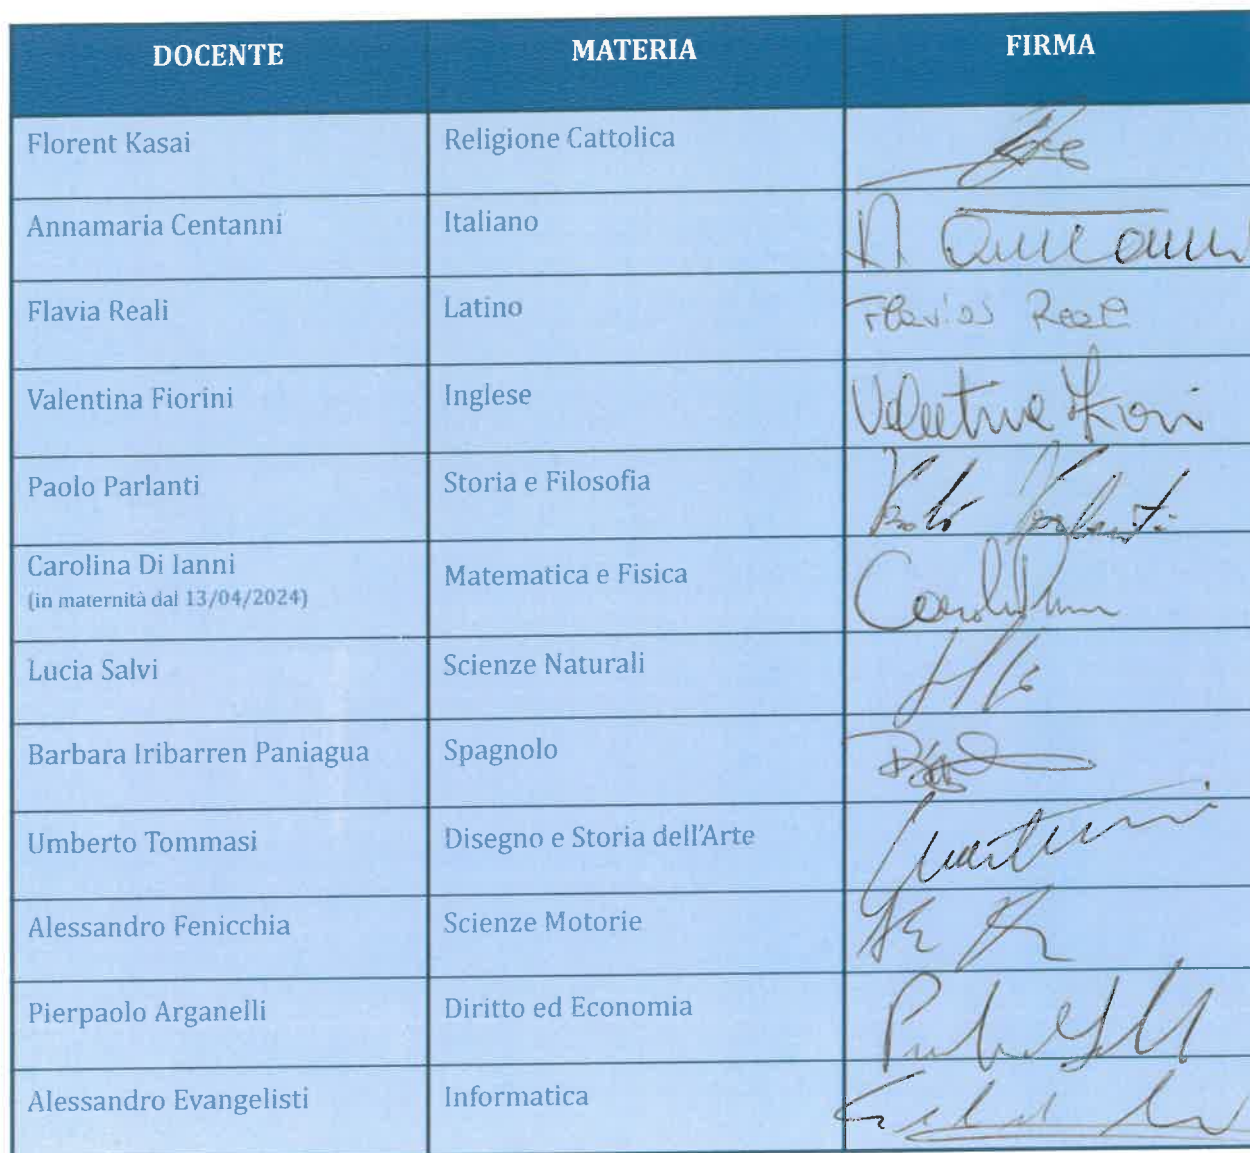 DOCENTE MATERIA FIRMA
Florent Kasai Religione Cattolica
Annamaria Centanni Italiano
Flavia Reali Latino Flavia Reali
Valentina Fiorini Inglese Valentina
Paolo Parlanti Storia e Filosofia Paolo Parlanti
Carolina Di Ianni Matematica e Fisica
(in maternità dal 13/04/2024)
Lucia Salvi Scienze Naturali
Barbara Iribarren Paniagua Spagnolo
Umberto Tommasi Disegno e Storia dell'Arte
Alessandro Fenicchia Scienze Motorie
Pierpaolo Arganelli Diritto ed Economia
Alessandro Evangelisti Informatica